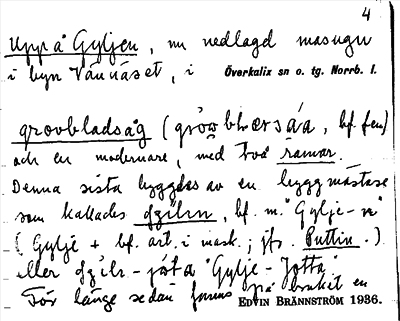 4
Uppå Gyljen, nu nedlagd masugn
i byn Vännäset, i Överkalix sn o. tg. Norrb. l.
grovbladsåg (
och en modernare, med två ramar.
Denna sista byggdes av en byggmästare
som kallades bf. m. "Gylje-n"
(Gylje + bf. art. i mask.; jfr. Puttin.)
eller "Gylje-Jotta"
För länge sedan fanns på bruket en
EDVIN BRÄNNSTRÖM 1936.